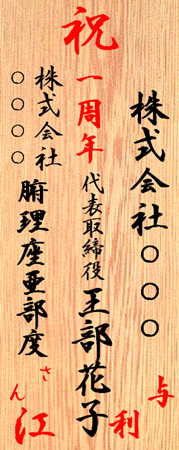 祝
一周年
与利
株式会社○○○
代表取締役 王部花子
株式会社○○○○
腑理座亜部度さん江